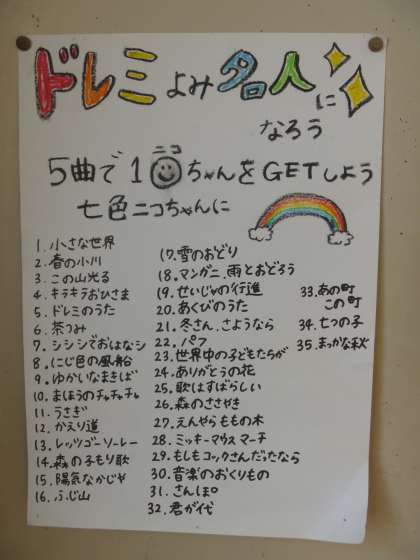 ドレミよみ名人に
なろう
5曲で1ニコちゃんをGETしよう
七色ニコちゃんに
1. 小さな世界
2. 春の小川
3. この山光る
4. キラキラおひさま
5. ドレミのうた
6. 茶つみ
7. シシシでおはなし
8. にじ色の風船
9. ゆかいなまきば
10. まほうのチャチャチャ
11. うさぎ
12. かえり道
13. レッツゴーソーレー
14. 森の子もり歌
15. 陽気なかじや
16. ふじ山
17. 雪のおどり
18. マンガニ、雨とおどろう
19. せいじゃの行進
20. あくびのうた
21. 冬さん、さようなら
22. パフ
23. 世界中の子どもたちが
24. ありがとうの花
25. 歌はすばらしい
26. 森のささやき
27. えんやらももの木
28. ミッキーマウス マーチ
29. もしもコックさんだったなら
30. 音楽のおくりもの
31. さんぽ
32. 君が代
33. あの町
この町
34. 七つの子
35. まっかな秋